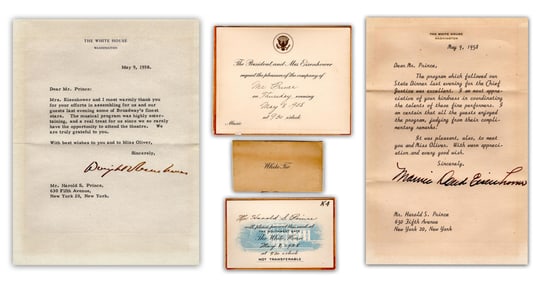 THE WHITE HOUSE
WASHINGTON
May 9, 1958.
Dear Mr. Prince:
Mrs. Eisenhower and I most warmly thank you
for your efforts in assembling for us and our
guests last evening some of Broadway's finest
stars. The musical program was highly enter-
taining, and a real treat for us since we so rarely
have the opportunity to attend the theatre. We
are truly grateful to you.
With best wishes to you and to Miss Oliver,
Sincerely,
Dwight Eisenhower
Mr. Harold S. Prince,
630 Fifth Avenue,
New York 20, New York.
The President and Mrs Eisenhower
request the pleasure of the company of
Mr. Prince
on Thursday evening
May 8, 1958
at 9:30 o'clock
Music
White Tie
K4
Mr. Harold S. Prince
will please present this card at
The White House
May 8, 1958
at 9:30 o'clock
NOT TRANSFERABLE
THE WHITE HOUSE
WASHINGTON
May 9, 1958
Dear Mr. Prince:
The program which followed our
State Dinner last evening for the Chief
Justice was excellent. I am most appre-
ciative of your kindness in coordinating
the talents of these fine performers. I
am certain that all the guests enjoyed
the program, judging from their compli-
mentary remarks!
It was pleasant, also, to meet
you and Miss Oliver. With warm appre-
ciation and every good wish.
Sincerely,
Mamie Doud Eisenhower
Mr. Harold S. Prince
630 Fifth Avenue
New York 20, New York